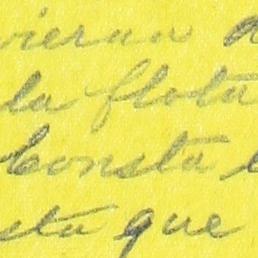 vieran a
la flota
consta
sta que